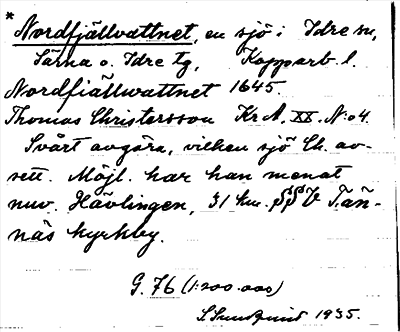 * Nordfjällvattnet, en sjö i Idre sn,
Särna o. Idre tg, Kopparb. l.
Nordfiällwattnet 1645.
Thomas Christersson Kr. A. XX. N:o 4.
Svårt avgöra, vilken sjö Ch. av-
sett. Möjl. har han menat
nuv. Hävlingen, 31 km. SSV Tän-
näs kyrkby.
G. 76 (1:200.000)
S. Sundquist 1935.